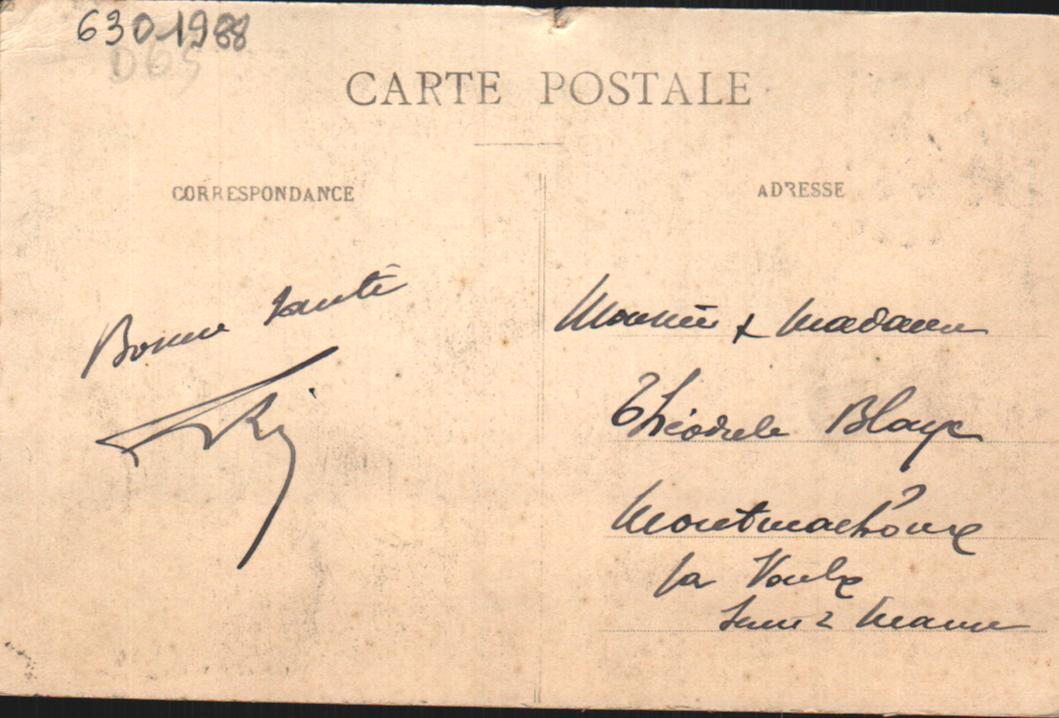 6301988
D65
CARTE POSTALE
CORRESPONDANCE
ADRESSE
Bonne Santé
Monsieur & Madame
Théodule Blaye
Montmachoux
pa Voulx
Seine & Marne